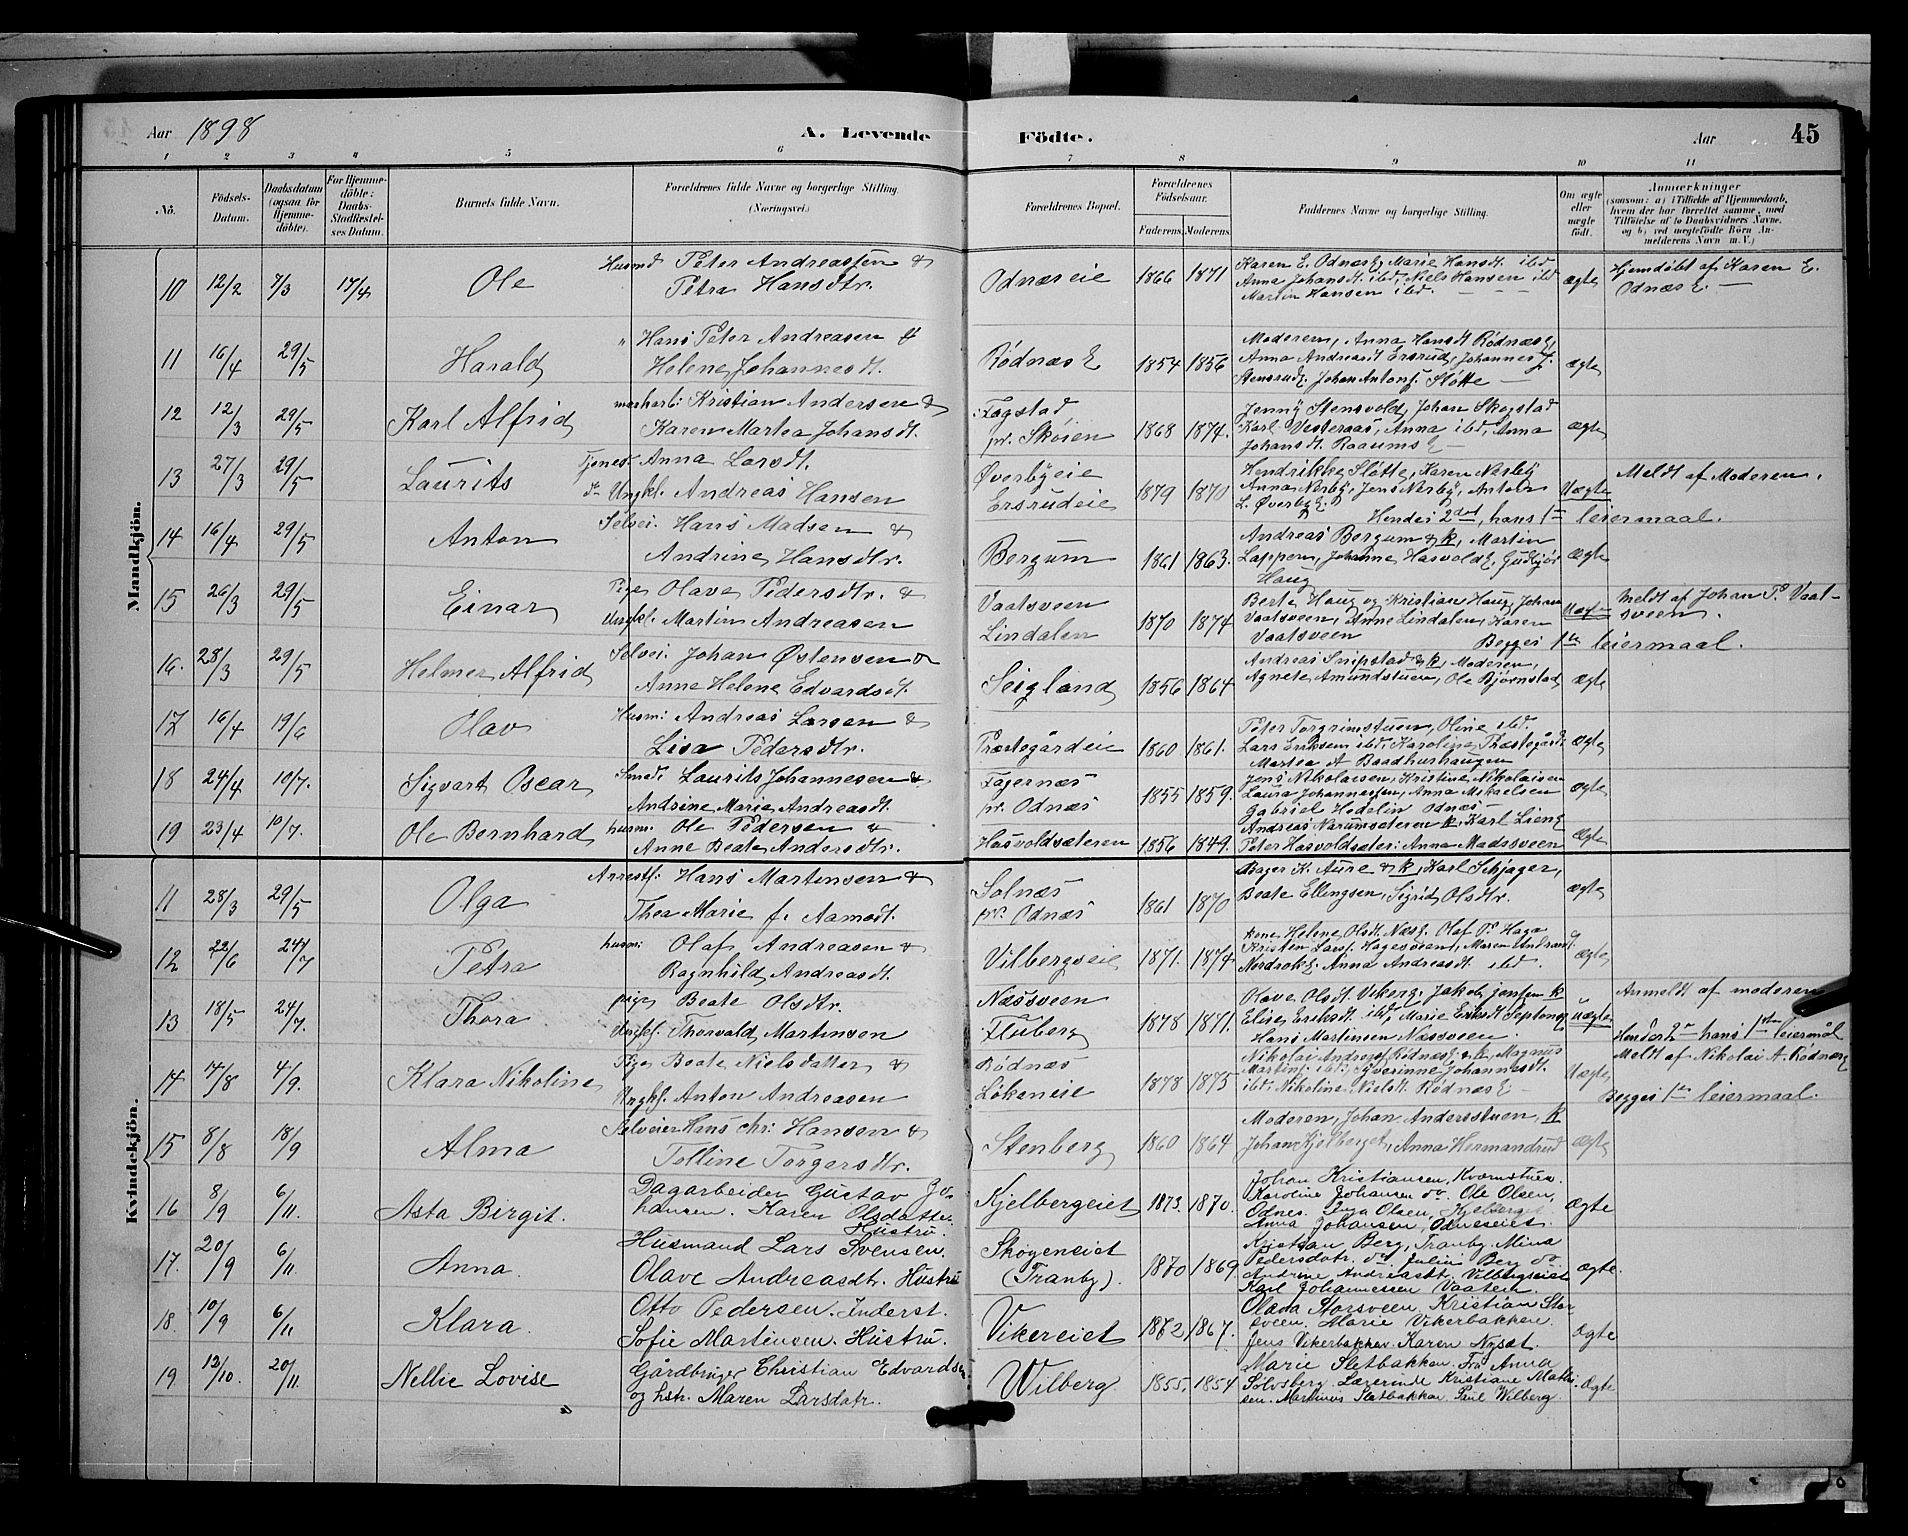 Aar 1898 A. Levende Födte. Aar 45
1 2 3 4 5 6 7 8 9 10 11
No. Födsels-Datum. Daabsdatum (ogsaa for Hjemme-döbte). For Hjemme-döbte: Daabs-Stadfæstel-ses Datum. Barnets fulde Navn. Forældrenes fulde Navne og borgerlige Stilling. (Næringsvei.) Forældrenes Bopæl. Forældrenes Födselsaar. Faderens. Moderens. Faddernes Navne og borgerlige Stilling. Om ægte eller uægte födt. Anmærkninger (saasom: a) i Tilfælde af Hjemmedaab, hvem der har forrettet samme, med Tilföielse af to Daabsvidners Navne, og b) ved uægtefödte Börn An-melderens Navn m. V.)
Mandkjön.
10 12/2 7/3 17/4 Ole Husmd Peter Andreassen &
Petra Hansdtr. Odnæseie 1866 1871 Karen E. Odnæse, Marie Hansdt. ibd
Anna Johansdt. ibd, Niels Hansen ibd
Martin Hansen ibd. ægte Hjemdöbt af Karen E.
Odnæs E.
11 16/4 29/5 Harald " Hans Peter Andreasen &
Helene Johannesdt. Rødnæs E 1854 1856 Moderen, Anna Hansdt Rødnæse,
Anna Andreasdt Ersrud, Johannes J.
Stensrude. Johan Antons. Sløtte ægte
12 12/3 29/5 Karl Alfrid Kristian Andersen &
Karen Martea Johansdt. Fagstad
pr. Skøien 1868 1874. Jenny Stensvold, Johan Skogstad
Karl Vesteraas, Anna ibd, Anna
Johansdt. Raaums E ægte
13 27/3 29/5 Laurits Tjenest Anna Larsdt.
Ungkl. Andreas Hansen Øverbyeie
Ersrudeie 1879 1870 Hendrikke Sløtte, Karen Nerby
Anna Nerby, Jens Nerby, Anton
L. Øverby E. Uægte Meldt af Moderen.
Hendes 2det, hans 1te leiermaal.
14 16/4 29/5 Anton Selvei. Hans Madsen &
Andrine Hansdtr. Bergum 1861 1863. Andreas Bergum & k, Martin
Lappen, Johanne Hasvold E, Gudbjør
Haug ægte
15 26/3 29/5 Einar Pige Olave Pedersdtr. &
Ungkl. Martin Andreasen Vaatsveen
Lindalen 1870 1874 Berte Haug og Kristian Haug, Johan
Vaatsveen, Anne Lindalen, Karen
Vaatsveen Uægte Meldt af Johan P. Vaat-
sveen.
Begges 1te leiermaal.
16. 28/3 29/5 Helmer Alfrid Selvei. Johan Østensen &
Anne Helene Edvardsdt. Seigland 1856 1864 Andreas Snipstad & k, Moderen,
Agnete Amundstuen, Ole Bjørnstad ægte
17 16/4 19/6 Olav Husm: Andreas Larsen &
Lisa Pedersdtr. Præstegårdeie 1860 1861. Peter Torgrimstuen, Oline ibd.
Lars Eriksen ibd, Karoline Præstegård.
Martea A Baadhushaugen ægte
18 24/4 10/7. Sigvart Oscar Smed: Laurits Johannesen &
Andrine Marie Andreasdt. Fagernæs
pr. Odnæs 1855 1859. Jens Nikolaisen, Kristine Nikolaisen
Laura Johannessen, Anna Mikkelsen
Gabriel Hedelin Odnæs ægte
19 23/4 10/7. Ole Bernhard husm: Ole Pedersen &
Anne Beate Andersdtr. Hasvoldsæteren 1856 1849. Andreas Narumseteren k, Karl Lieng
Peter Hasvoldsæter. Anna Madssveen Ægte
Kvindekjön.
11 28/3 29/5 Olga Arrestf. Hans Martinsen &
Thea Marie f. Aamodt. Solnæs
pr. Odnæs 1861 1870 Bager K. Aure & k, Karl Schjager,
Beate Ellingsen, Sigrid Olsdtr. ægte
12 22/6 24/7 Petra husm: Olaf Andreasen &
Ragnhild Andreasdt. Vilbergseie 1871. 1874. Anne Helene Olsdt. Næs E. Olaf P. Haga
Kristen Larss. Hagesveen, Maren Andreasd.
Nordrak E. Anna Andreasdt. ibd. ægte
13 18/5 24/7. Thora pige Beate Olsdtr.
Ungkl. Thorvald Martinsen Næssveen
Fluberg 1878 1871. Olave Olsdt. Viker E. Jakob Jensen k
Elise Eriksdt. ibd, Marie Eriksdt
Hans Martinsen Næssveen Uægte Anmeldt af moderen
Hendes 2n hans 1ste leiermål
14 7/8 4/9. Klara Nikoline Pige Beate Nielsdatter &
Ungkl. Anton Andreasen Rødnæs
Lökeneie 1878 1875 Nikolai Andreas. Rødnæs E & k, Magnus
Martins. ibd. Syverinne Johannesdt.
ibd. Nikoline Nielsdt. Rødnæs E Uægte Meldt af Nikolai A. Rødnæs E
Begges 1te leiermaal.
15 8/8 18/9 Alma Selveier Hans Chr: Hansen &
Tolline Torgersdtr. Stenberg 1860 1864 Moderen, Johan Andersstuen, k
Johan Kjelberget, Anna Hermandrud ægte
16 8/9 6/11. Asta Birgit. Dagarbeider Gustav Jo-
hansen. Karen Olsdatter
Hustru. Kjelbergeiet 1873. 1870. Johan Kristiansen, Kværnstuen.
Karoline Johansen do. Ole Olsen,
Odnes. Inga Olsen, Kjelberget
Anna Johansen, Odneseiet. Ægte
17. 20/9 6/11. Anna. Husmand Lars Svensen.
Olave Andreasdtr. Hustru Skogeneiet
(Tranby). 1870 1869 Kristian Berg, Tranby. Mina
Pedersdatr. do. Julius Berg do
Andrine Andreasdtr. Vilbergseiet
Karl Johannessen Vaatein. Ægte.
18. 10/9 6/11 Klara. Otto Pedersen. Inderst.
Sofie Martinsen. Hustru. Vikereiet 1872 1867. Olava Storsveen. Kristian Stor-
sveen. Marie Vikerbakken.
Jens Vikerbakken. Karen Nyset. Ægte
19 12/10. 20/11. Nellie Lovise Gårdbruger Christian Edvardsen
og hstr. Maren Larsdatr. Wilberg. 1855. 1854 Marie Sletbakken. Frø. Anna
Sølvsberg. Lærerinde Kristiane Mathi-
sen. Martinus Sletbakken. Paul Wilberg. Ægte